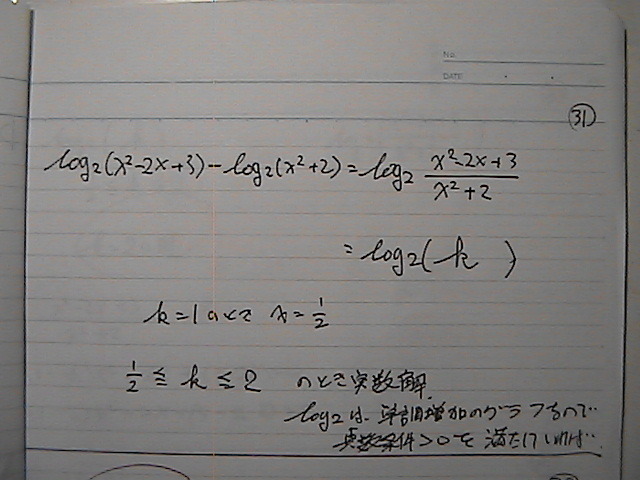 No.
DATE
㉛
log₂(x²-2x+3)-log₂(x²+2)=log₂ (x²-2x+3)/(x²+2)
=log₂( k )
k=1のとき x=1/2
1/2 ≦ k ≦ 2 のとき実数解
log₂は、単調増加のグラフなので
真数条件>0を満たしていれば…